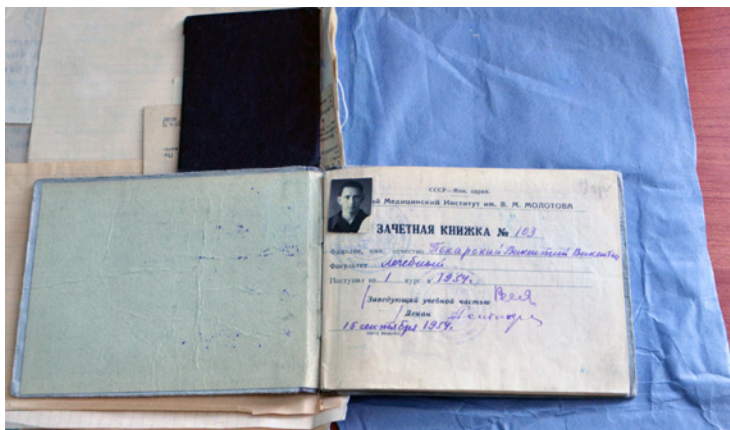 СССР—Мин. здрав.
Медицинский Институт им. В. М. МОЛОТОВА
ЗАЧЕТНАЯ КНИЖКА № 103
Фамилия, имя, отчество Пекарский Викентий Викентьев
Факультет лечебный
Поступил на 1 курс в 1954 г.
Заведующий учебной частью
Декан
16 сентября 1954 г.